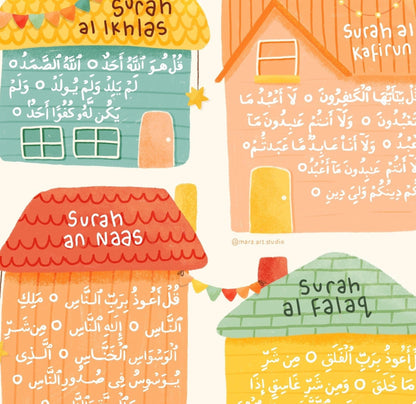 Surah
al Ikhlas
قُلْ هُوَ ٱللَّهُ أَحَدٌ ۝ ٱللَّهُ ٱلصَّمَدُ ۝
لَمْ يَلِدْ وَلَمْ يُولَدْ ۝ وَلَمْ
يَكُن لَّهُۥ كُفُوًا أَحَدٌ ۝
Surah al
Kafirun
قُلْ يَٰٓأَيُّهَا ٱلْكَٰفِرُونَ ۝ لَآ أَعْبُدُ مَا
تَعْبُدُونَ ۝ وَلَآ أَنتُمْ عَٰبِدُونَ مَآ
أَعْبُدُ ۝ وَلَآ أَنَا۠ عَابِدٌ مَّا عَبَدتُّمْ ۝
أَنتُمْ عَٰبِدُونَ مَآ أَعْبُدُ ۝
دِينُكُمْ وَلِىَ دِينِ ۝
@marz art studio
Surah
an Naas
قُلْ أَعُوذُ بِرَبِّ ٱلنَّاسِ ۝ مَلِكِ
ٱلنَّاسِ ۝ إِلَٰهِ ٱلنَّاسِ ۝ مِن شَرِّ
ٱلْوَسْوَاسِ ٱلْخَنَّاسِ ۝ ٱلَّذِى
يُوَسْوِسُ فِى صُدُورِ ٱلنَّاسِ ۝
Surah
al Falaq
أَعُوذُ بِرَبِّ ٱلْفَلَقِ ۝ مِن شَرِّ
مَا خَلَقَ ۝ وَمِن شَرِّ غَاسِقٍ إِذَا